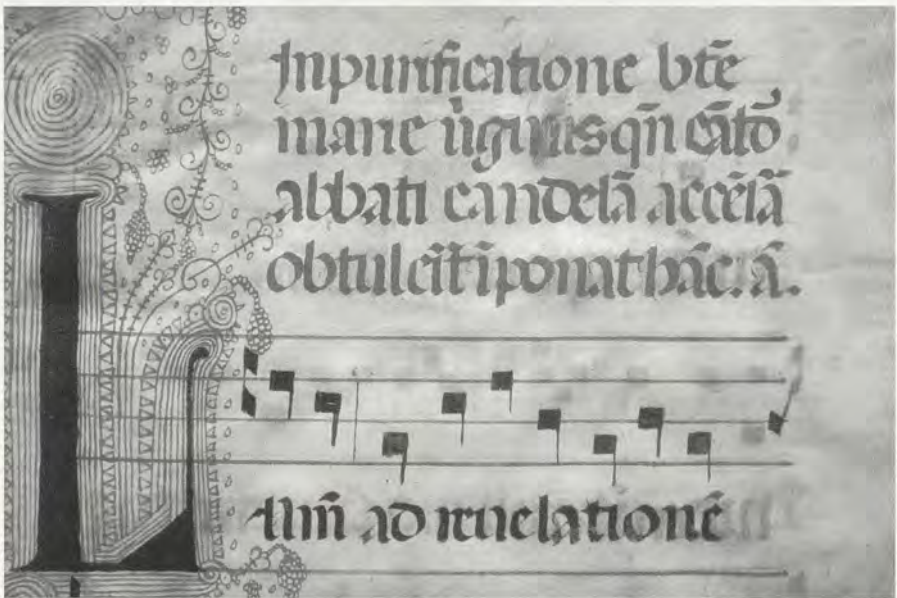 Inpurificatione btē
marie v̄ginis qn̄ cātō
abbati candelā accēsā
obtulēit īponat hāc. ā.
Lum̄ ad reuelationē